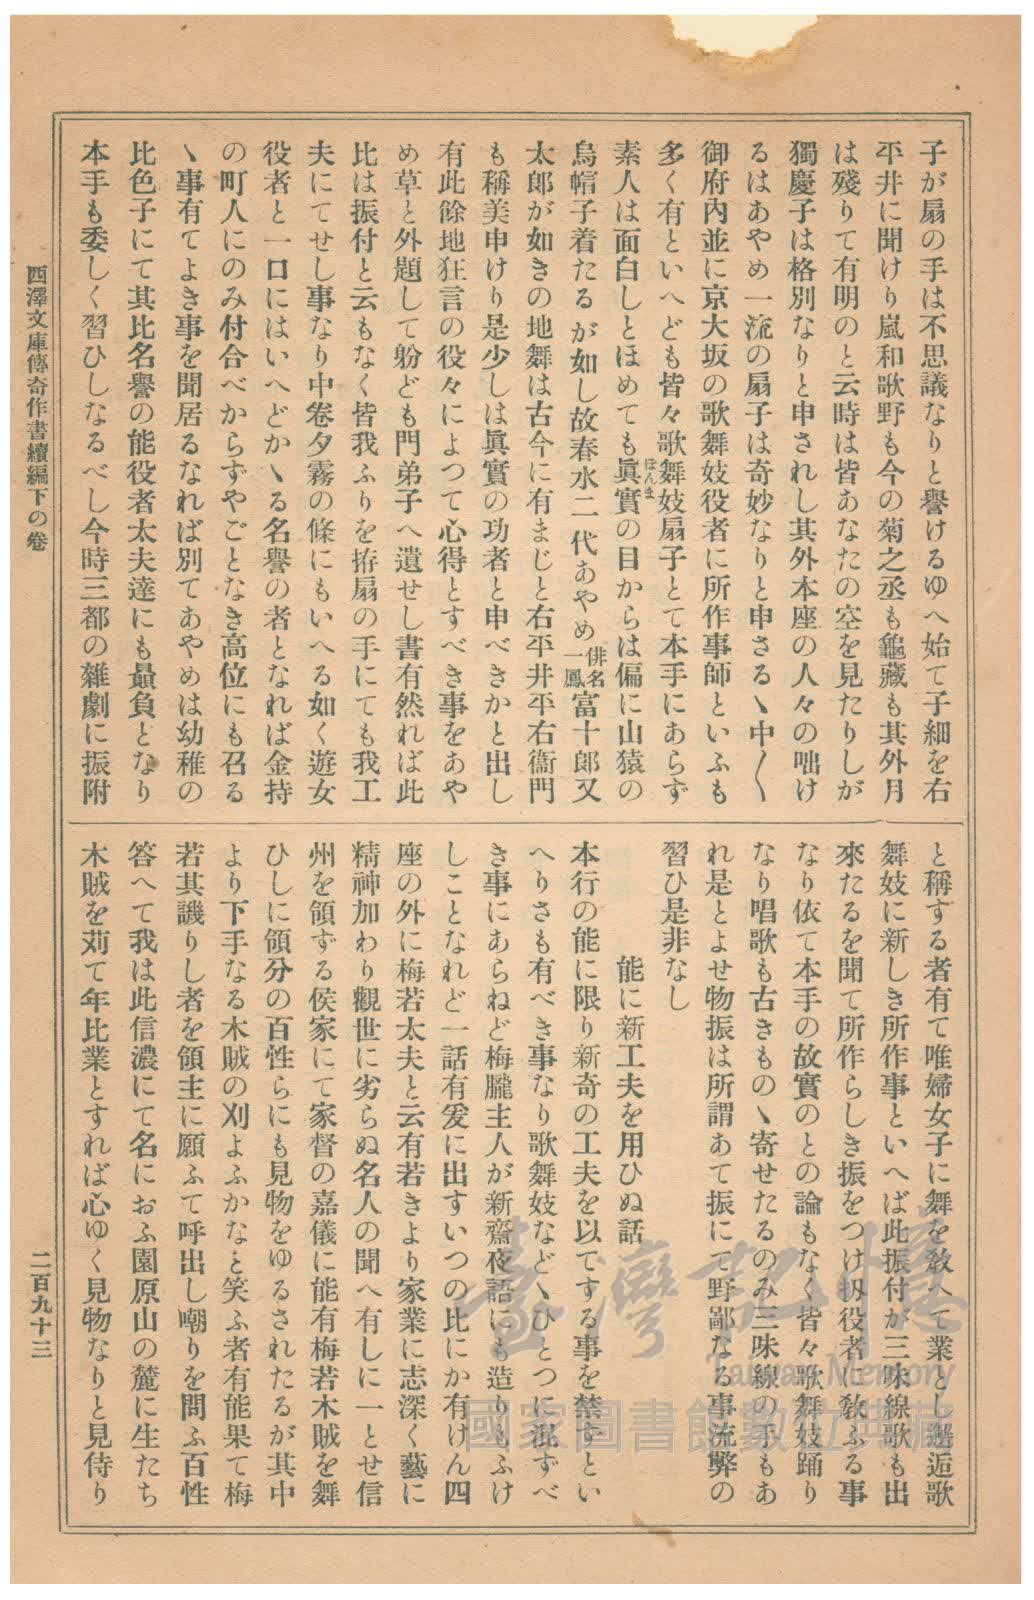 子が扇の手は不思議なりと譽けるゆへ始て子細を右
平井に聞けり嵐和歌野も今の菊之丞も龜藏も其外月
は殘りて有明のと云時は皆あなたの空を見たりしが
獨慶子は格別なりと申されし其外本座の人々の咄け
るはあやめ一流の扇子は奇妙なりと申さるゝ中〳〵
御府內並に京大坂の歌舞妓役者に所作事師といふも
多く有といへども皆々歌舞妓扇子とて本手にあらず
素人は面白しとほめても眞實の目からは偏に山猿の
ほんま
烏帽子着たるが如し故春水二代あやめ俳名一鳳富十郎又
太郎が如きの地舞は古今に有まじと右平井平右衞門
も稱美申けり是少しは眞實の功者と申べきかと出し
有此餘地狂言の役々によつて心得とすべき事をあや
め草と外題して躬ども門弟子へ遺せし書有然れば此
比は振付と云もなく皆我ふりを拵扇の手にても我工
夫にてせし事なり中卷夕霧の條にもいへる如く遊女
役者と一口にはいへどかゝる名譽の者となれば金持
の町人にのみ付合べからずやごとなき高位にも召る
ゝ事有てよき事を聞居るなれば別てあやめは幼稚の
比色子にて其比名譽の能役者太夫達にも最負となり
本手も委しく習ひしなるべし今時三都の雜劇に振附
と稱する者有て唯婦女子に舞を敎へて業とし邂逅歌
舞妓に新しき所作事といへば此振付が三味線歌も出
來たるを聞て所作らしき振をつけ扨役者に敎ふる事
なり依て本手の故實のとの論もなく皆々歌舞妓踊り
なり唱歌も古きものゝ寄せたるのみ三味線の手もあ
れ是とよせ物振は所謂あて振にて野鄙なる事流弊の
習ひ是非なし
能に新工夫を用ひぬ話
本行の能に限り新奇の工夫を以てする事を禁ずとい
へりさも有べき事なり歌舞妓などゝひとつに混ずべ
き事にあらねど梅朧主人が新齋夜語にも造りもふけ
しことなれど一話有爰に出すいつの比にか有けん四
座の外に梅若太夫と云有若きより家業に志深く藝に
精神加わり觀世に劣らぬ名人の聞へ有しに一とせ信
州を領ずる侯家にて家督の嘉儀に能有梅若木賊を舞
ひしに領分の百性らにも見物をゆるされたるが其中
より下手なる木賊の刈よふかなと笑ふ者有能果て梅
若其譏りし者を領主に願ふて呼出し嘲りを問ふ百性
答へて我は此信濃にて名におふ園原山の麓に生たち
木賊を苅て年比業とすれば心ゆく見物なりと見侍り
西澤文庫傳奇作書續編下の卷
二百九十三
臺灣記憶
Taiwan Memory
國家圖書館數位典藏